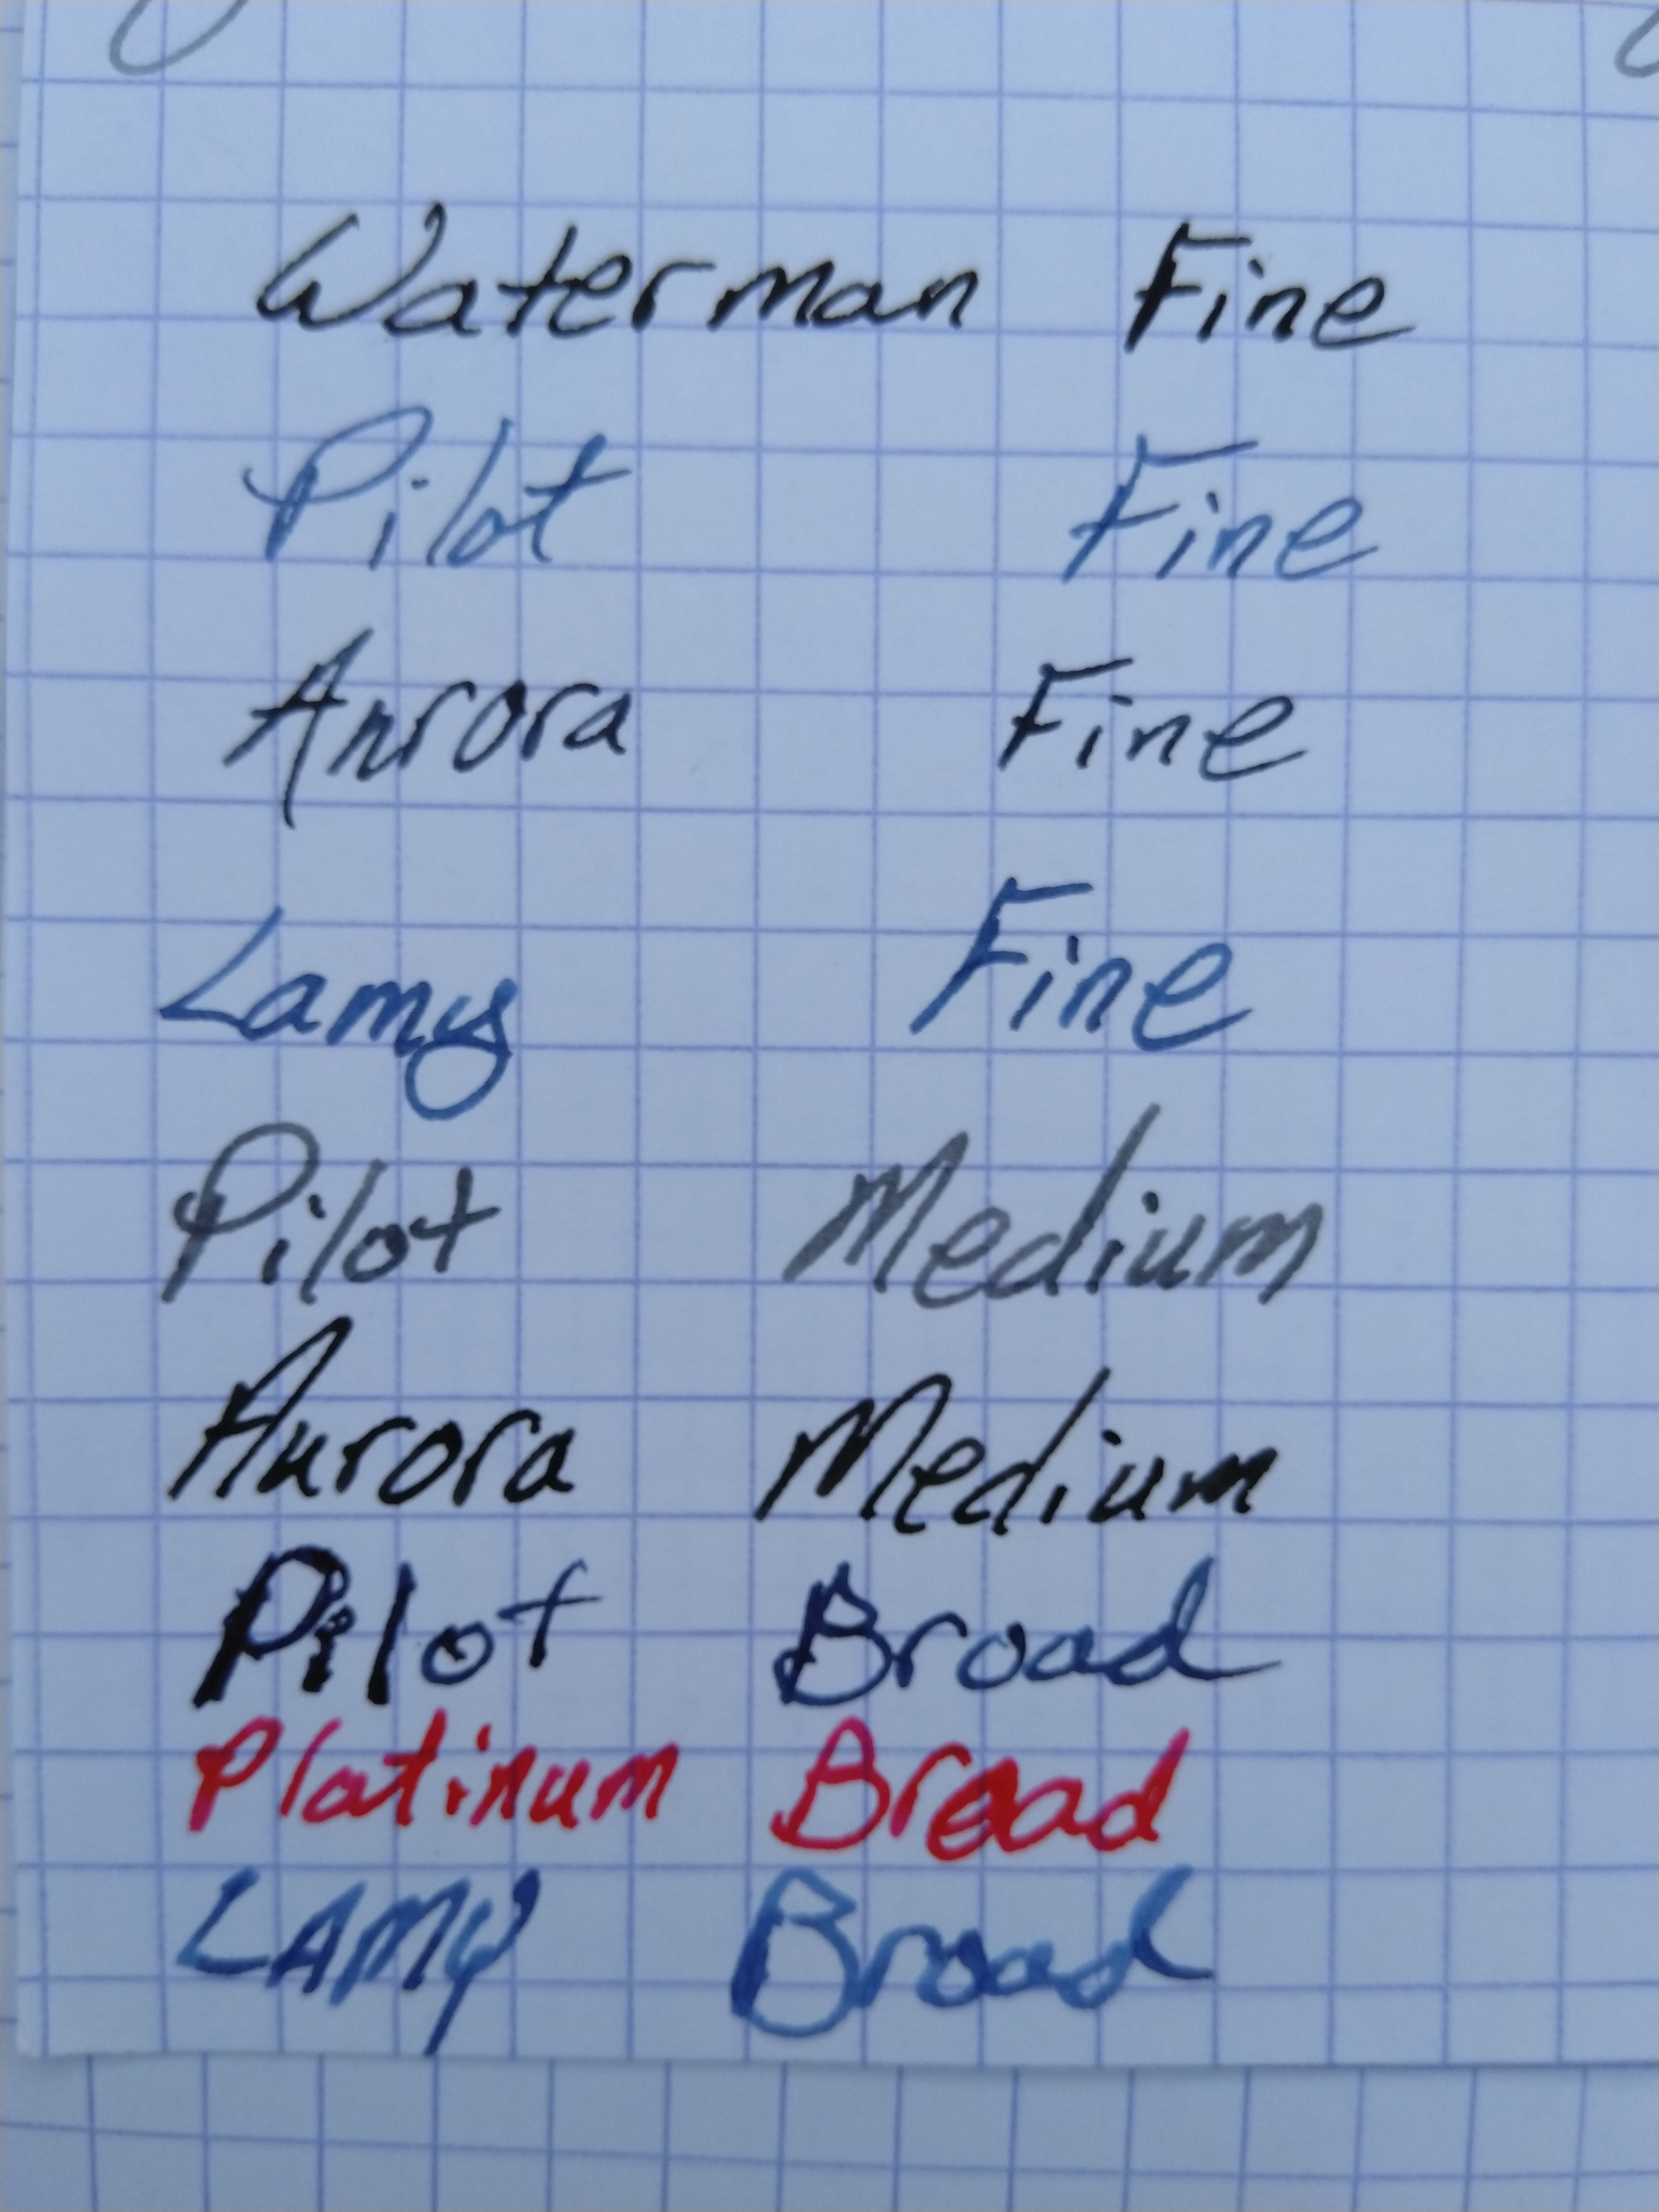 Waterman Fine
Pilot Fine
Aurora Fine
Lamy Fine
Pilot Medium
Aurora Medium
Pilot Broad
Platinum Broad
LAMY Broad